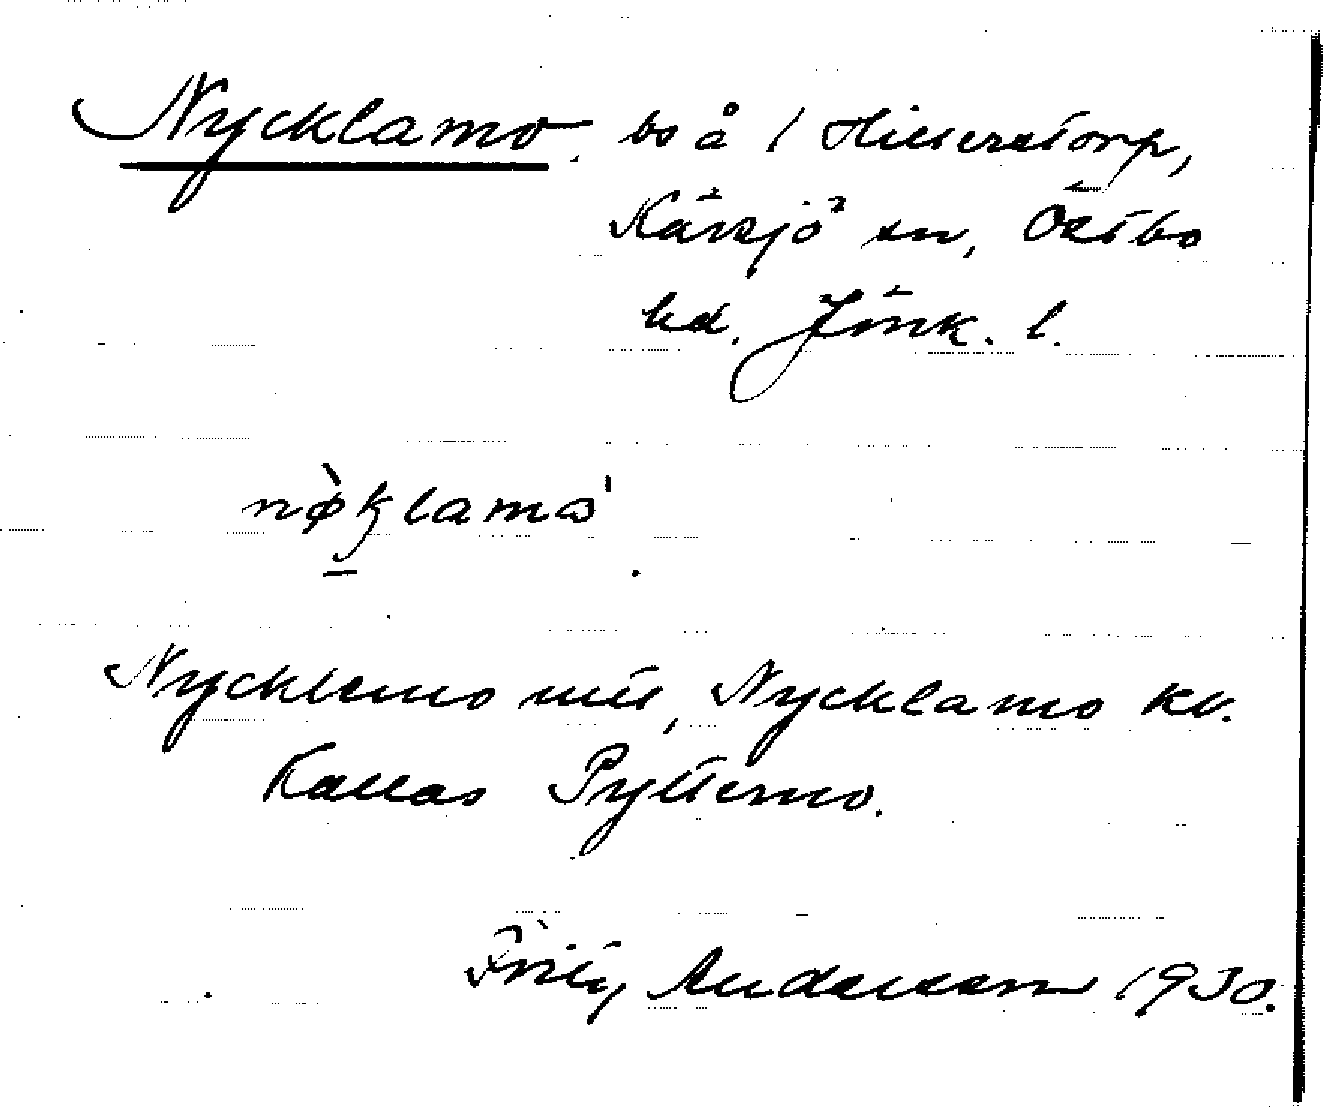 Nycklamo. bs å 1 Hillerstorp,
Kävsjö sn, Östbo
hd. Jönk. l.
nø̀klamω'
Nycklemo ull, Nycklamo kv.
Kallas Pyttemo.
Fritz Andersson 1930.